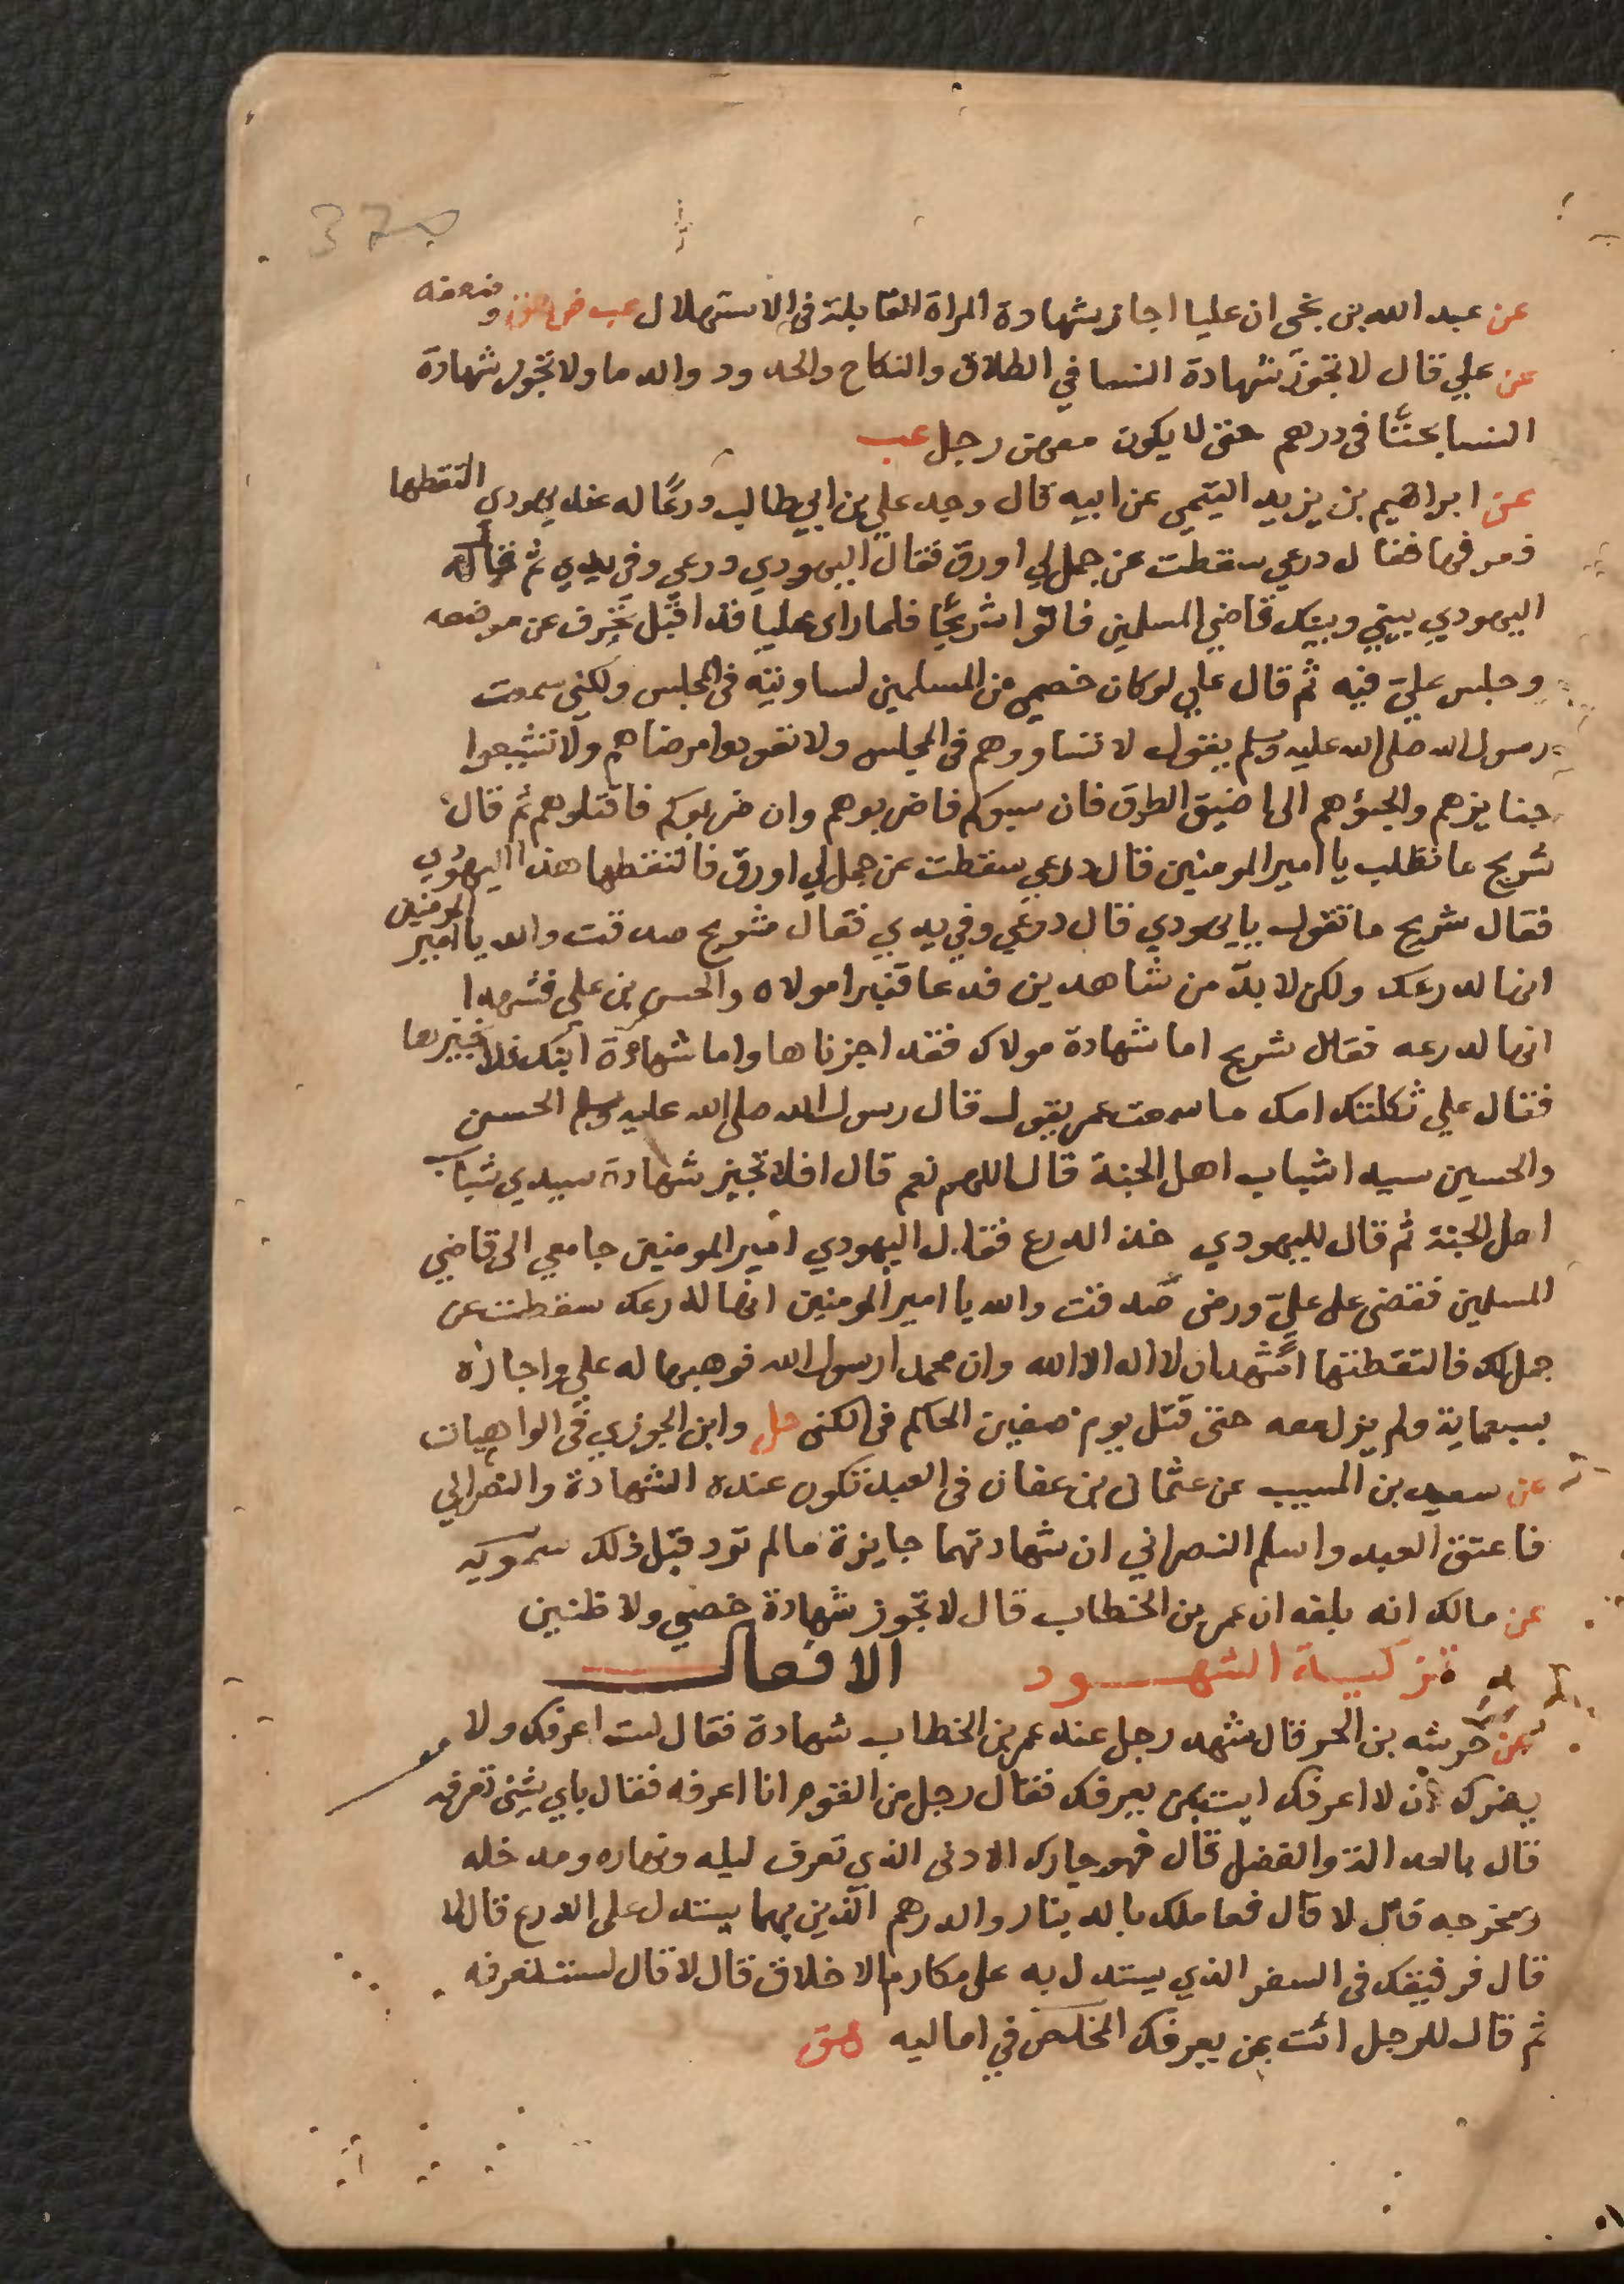 37
عن عبد الله بن نجى ان عليا اجاز شهادة المراة القابلة في الاستهلال عب ض هق وضعفه
عن علي قال لا تجوز شهادة النسا في الطلاق والنكاح والحدود والدما ولا تجوز شهادة
النسا بحتًا في درهم حتى لا يكون معهن رجل عب
عن ابراهيم بن يزيد التيمي عن ابيه قال وجد علي بن ابي طالب درعًا له عند يهودي التقطها
فعرفها فقال درعي سقطت عن جمل لي اورق فقال اليهودي درعي وفي يدي ثم قال له
اليهودي بيني وبينك قاضي المسلمين فاتوا شريحًا فلما راى عليا قد اقبل تحرف عن موضعه
وجلس عليّ فيه ثم قال علي لو كان خصمي من المسلمين لساويته في المجلس ولكني سمعت
رسول الله صلى الله عليه وسلم يقول لا تساووهم في المجلس ولا تعودوا مرضاهم ولا تشيعوا
جنايزهم والجئوهم الى اضيق الطرق فان سبوكم فاضربوهم وان ضربوكم فاقتلوهم ثم قال
شريح ما تطلب يا امير المومنين قال درعي سقطت عن جمل لي اورق فالتقطها هذا اليهودي
فقال شريح ما تقول يا يهودي قال درعي وفي يدي فقال شريح صدقت والله يا امير المومنين
انها لدرعك ولكن لا بدّ من شاهدين فدعا قنبرا مولاه والحسن بن علي فشهدا
انها لدرعه فقال شريح اما شهادة مولاك فقد اجزناها واما شهادة ابنك فلا نجيزها
فقال علي ثكلتك امك ما سمعت عمر يقول قال رسول الله صلى الله عليه وسلم الحسن
والحسين سيدا شباب اهل الجنة قال اللهم نعم قال افلا تجيز شهادة سيدي شباب
اهل الجنة ثم قال لليهودي خذ الدرع فقال اليهودي امير المومنين جا معي الى قاضي
المسلمين فقضى على عليّ ورضى صدقت والله يا امير المومنين انها لدرعك سقطت عن
جمل لك فالتقطتها اشهد ان لا اله الا الله وان محمدا رسول الله فوهبها له علي واجازه
بسبعماية ولم يزل معه حتى قتل يوم صفين الحاكم في الكنى حل وابن الجوزي في الواهيات
عن سعيد بن المسيب عن عثمان بن عفان في العبد تكون عنده الشهادة والنصراني
فاعتق العبد واسلم النصراني ان شهادتهما جايزة ما لم ترد قبل ذلك سمويه
عن مالك انه بلغه ان عمر بن الخطاب قال لا تجوز شهادة خصم ولا ظنين
تزكية الشهود الافعال
عن خرشه بن الحر قال شهد رجل عند عمر بن الخطاب شهادة فقال لست اعرفك ولا
يضرك ان لا اعرفك ايت بمن يعرفك فقال رجل من القوم انا اعرفه فقال باي شئ تعرفه
قال بالعدالة والفضل قال فهو جارك الادنى الذي تعرف ليله ونهاره ومدخله
ومخرجه قال لا قال فعاملك بالدينار والدرهم الذين بهما يستدل على الورع قال لا
قال فرفيقك في السفر الذي يستدل به على مكارم الاخلاق قال لا قال لست تعرفه
ثم قال للرجل ائت بمن يعرفك المخلص في اماليه هق